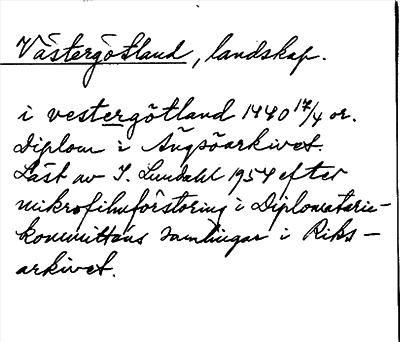 Västergötland, landskap.
i vestergötland 1440 17/4 or.
Diplom i Ängsöarkivet.
Läst av I. Lundahl 1954 efter
mikrofilmförstoring i Diplomatarie-
kommitténs samlingar i Riks-
arkivet.